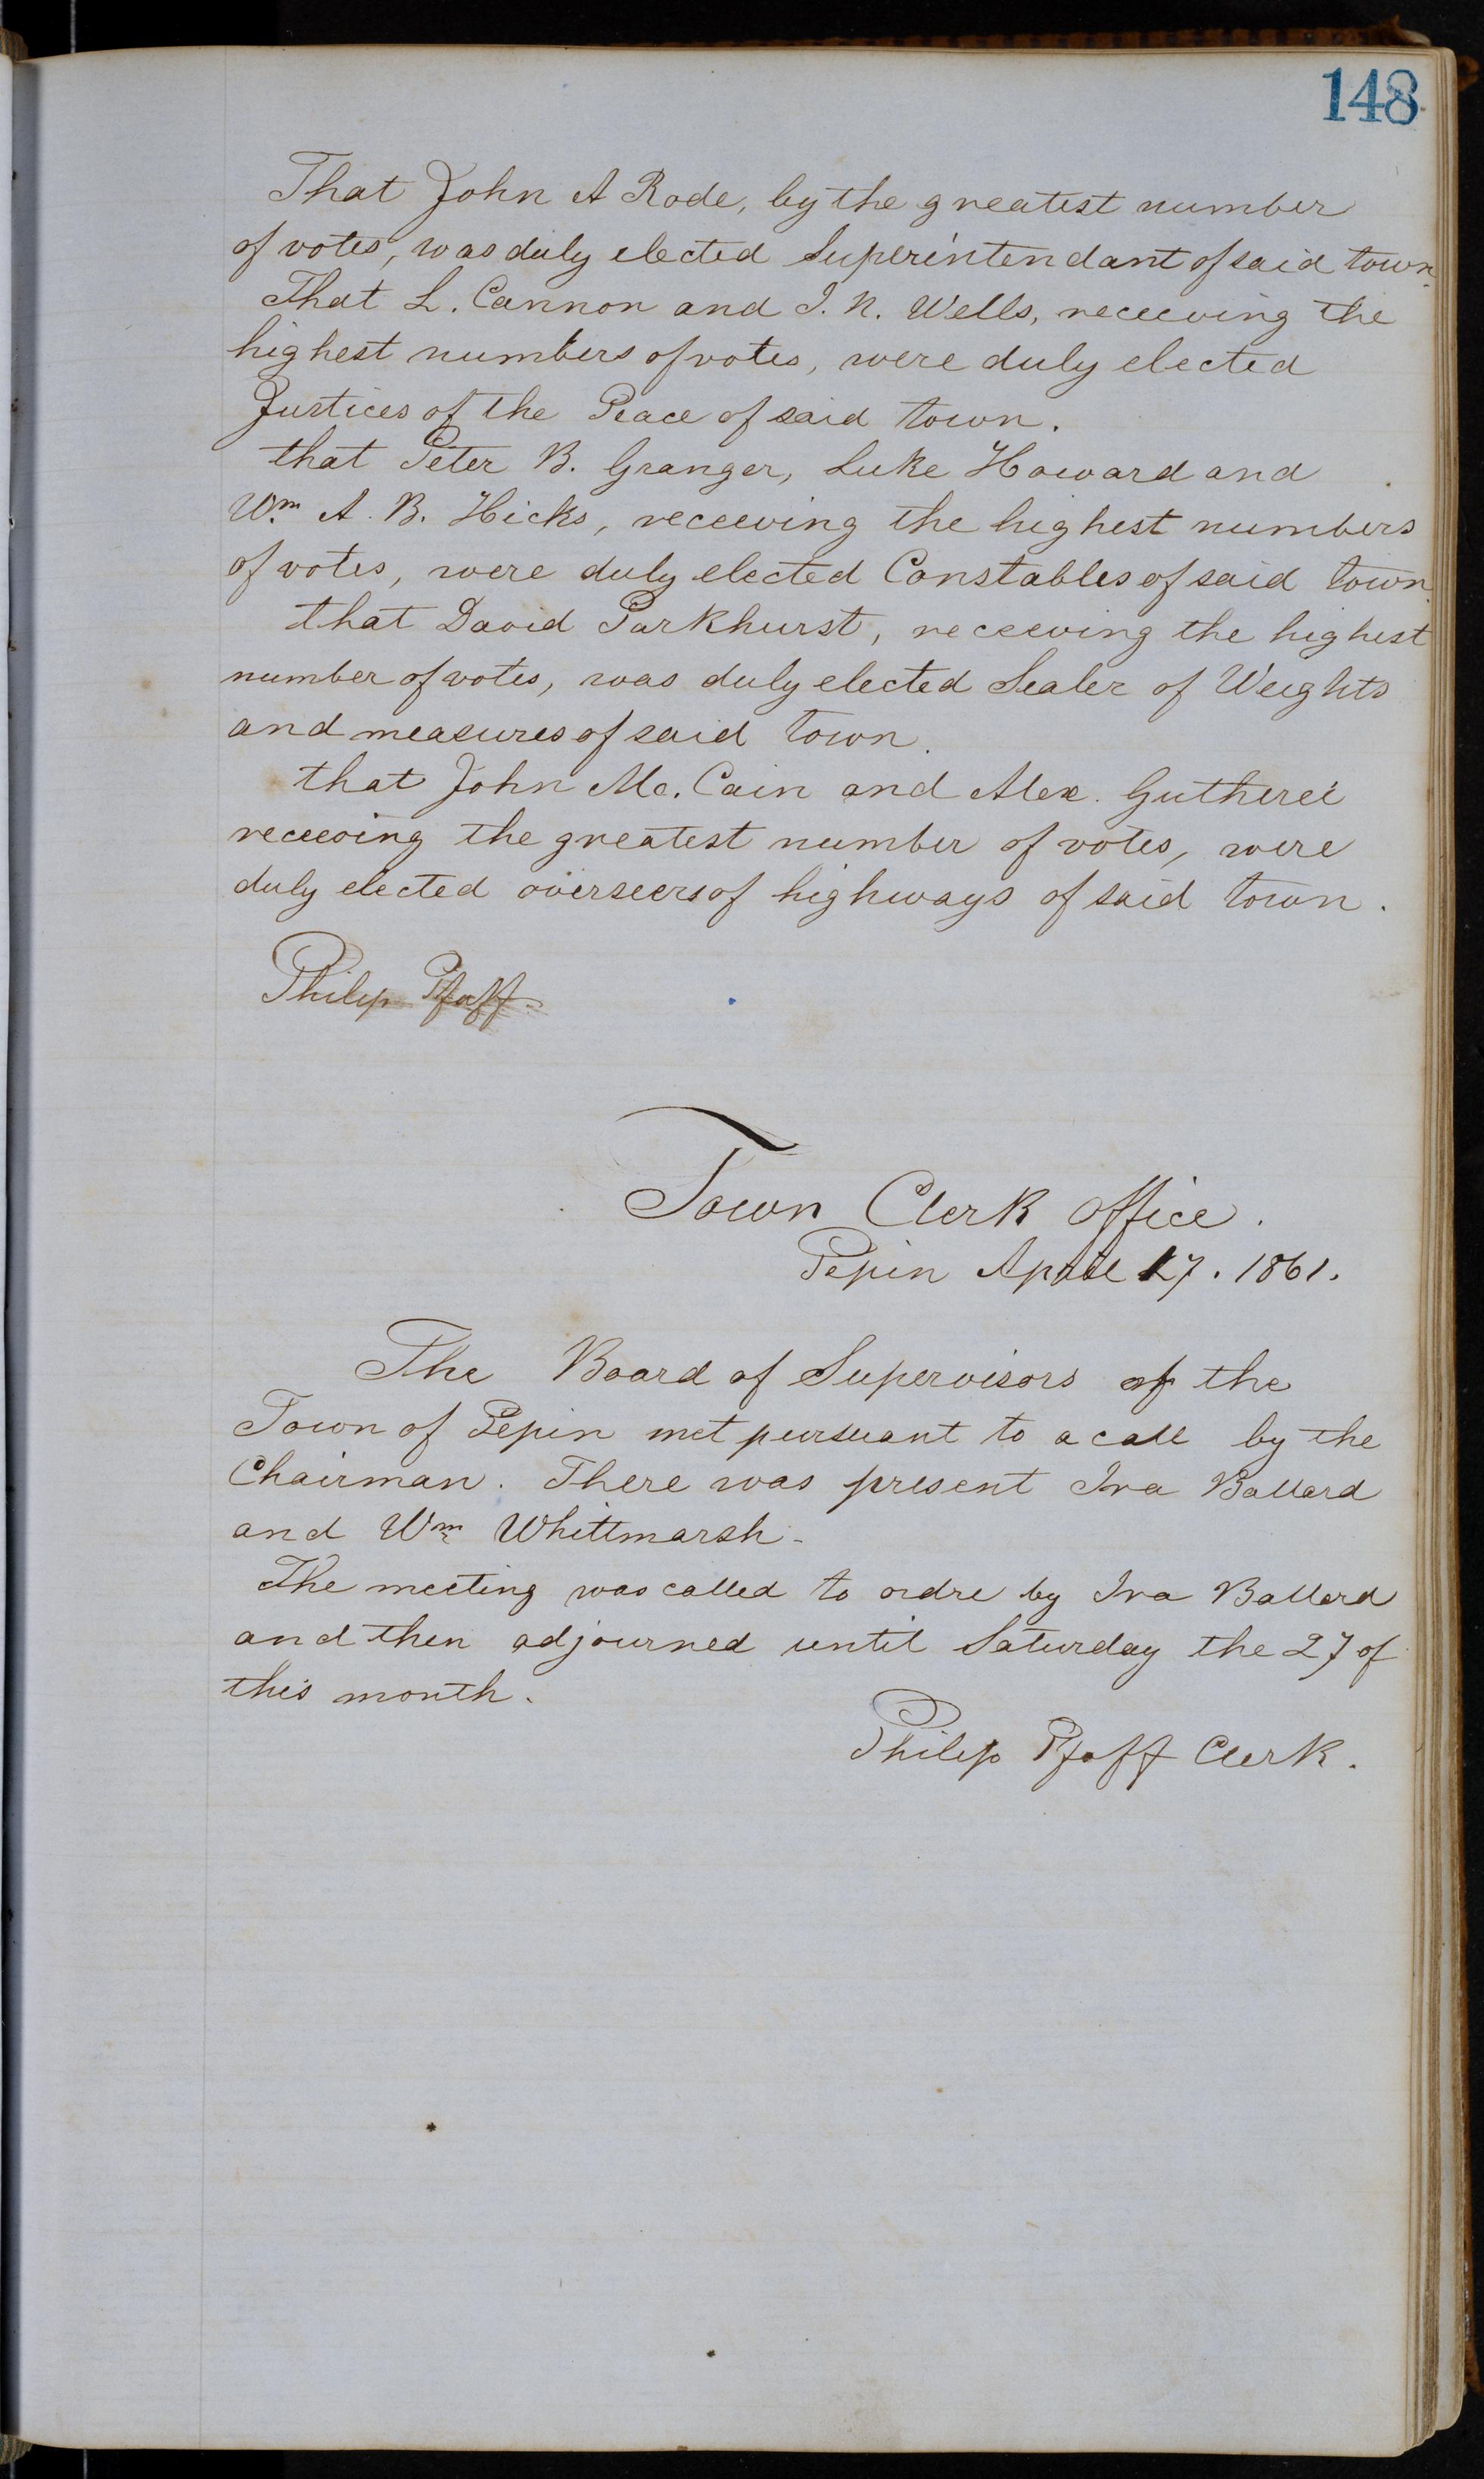 148
That John A Rode, by the greatest number
of votes, was duly elected Superintendant of said town.
That L. Cannon and I. N. Wells, receeving the
highest numbers of votes, were duly elected
Justices of the Peace of said town.
that Peter B. Granger, Luke Howard and
Wm A. B. Hicks, receeving the highest numbers
of votes, were duly elected Constables of said town.
that David Parkhurst, receeving the highest
number of votes, was duly elected Sealer of Weights
and measures of said town.
that John Mc. Cain and Alex. Gutherei
receeving the greatest number of votes, were
duly elected overseers of highways of said town.
Philip Pfaff
Town Clerk Office.
Pepin April 17. 1861.
The Board of Supervisors of the
Town of Pepin met pursuant to a call by the
Chairman. There was present Ira Ballard
and Wm Whittmarsh.
The meeting was called to ordre by Ira Ballard
and then adjourned until Saturday the 27 of
this month.
Philip Pfaff Clerk.